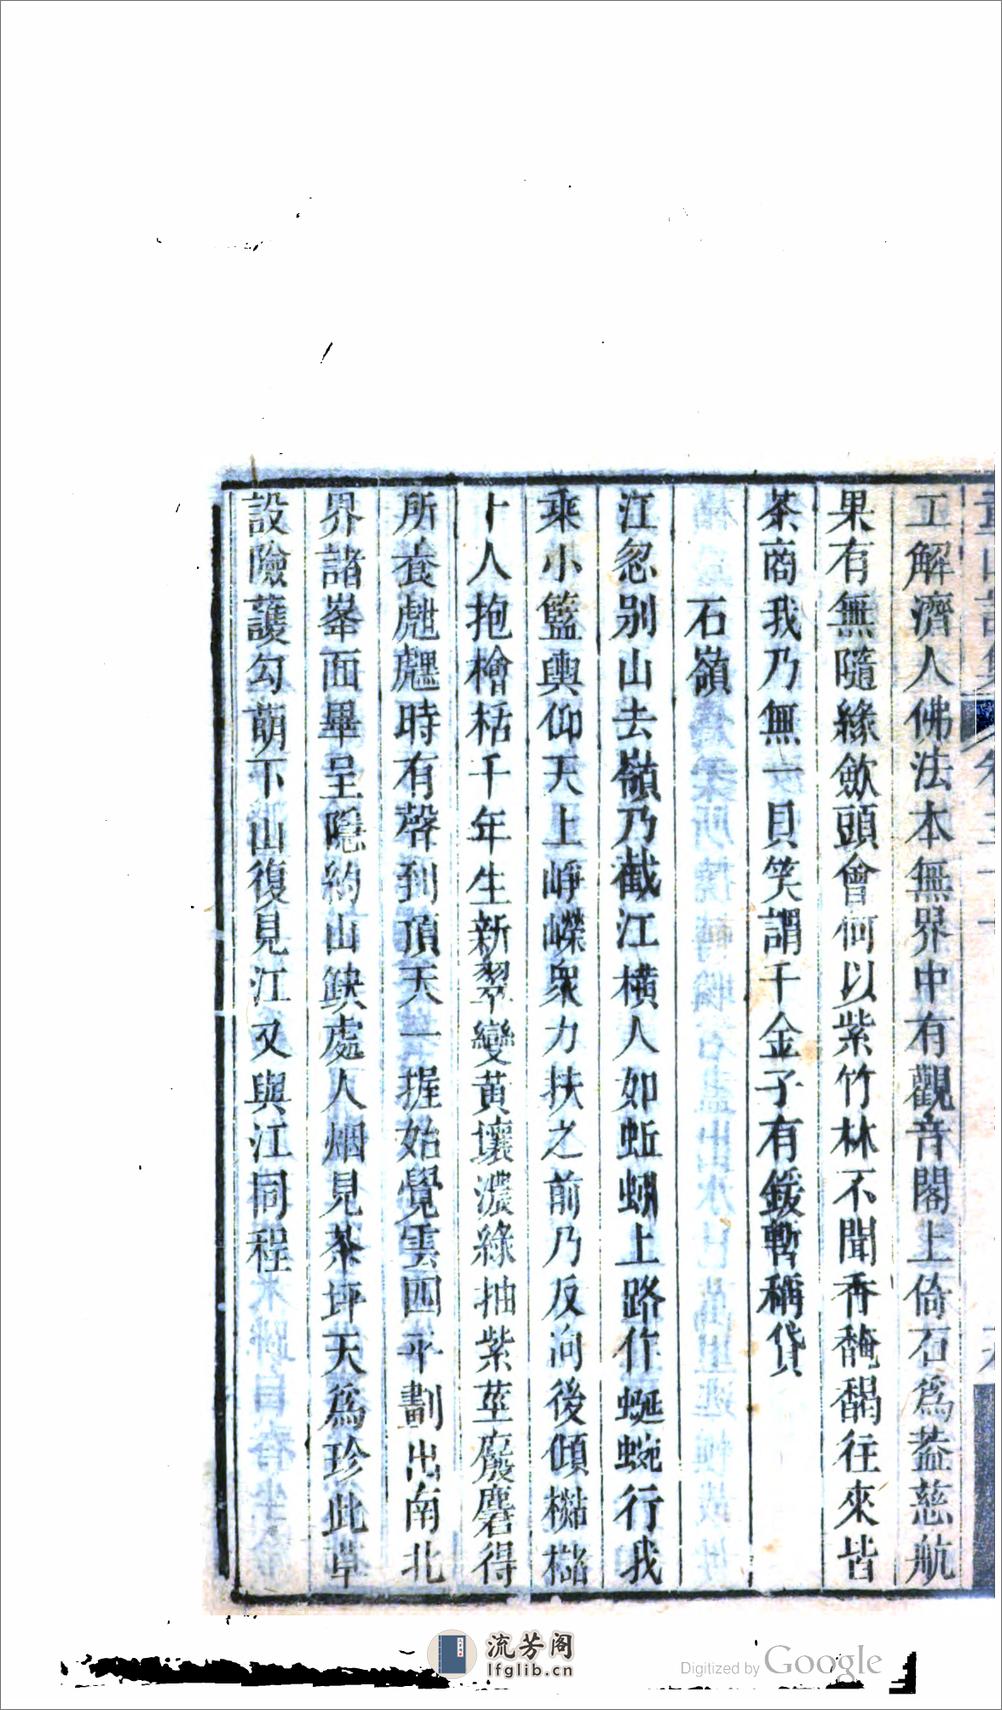 工解濟人佛法本無界中有觀音閣上倚石爲蓋慈航
果有無隨緣斂頭會何以紫竹林不聞香馣馤往來皆
茶商我乃無一貝笑謂千金子有鍰暫稱貸
石嶺
江忽别山去嶺乃截江橫人如蚯蚓上路作蜒蜿行我
乘小籃輿仰天上崢嶸衆力扶之前乃反向後傾
十人抱檜栝千年生新翠變黃壤濃綠抽紫莖麌麏得
所養虺時有聲到頂天一握始覺雲四平劃出南北
界諸峯面畢呈隱約山缺處人烟見茶坪天爲珍此草
設險護勾萌下山復見江又與江同程
流芳阁
lfglib.cn
Digitized by Google